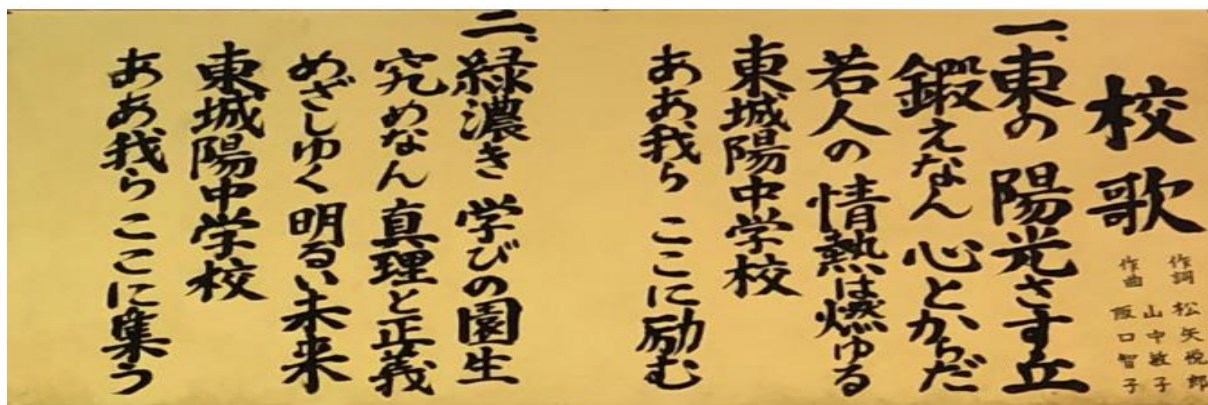 校歌
作詞 松矢悦郎
山中敏子
作曲 阪口智子
一、東の 陽光さす丘
鍛えなん 心とからだ
若人の 情熱は燃ゆる
東城陽中学校
ああ我ら ここに励む
二、緑濃き 学びの園生
究めなん 真理と正義
めざしゆく 明るい未来
東城陽中学校
ああ我ら ここに集う